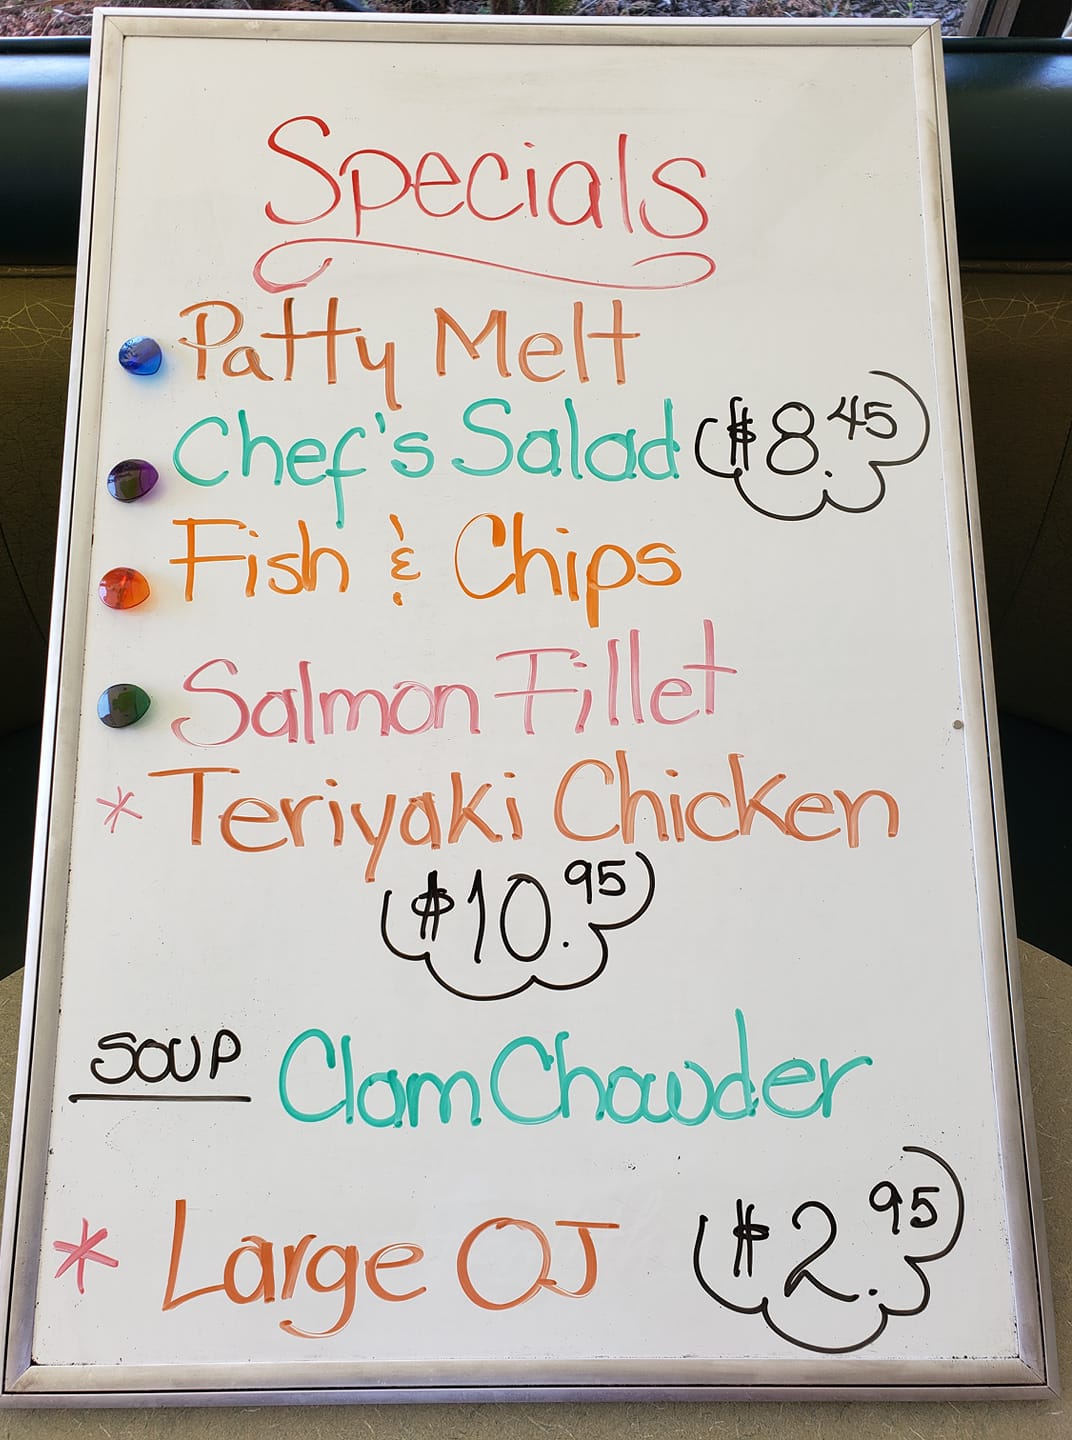 Specials
Patty Melt
Chef's Salad $8.45
Fish & Chips
Salmon Fillet
* Teriyaki Chicken
$10.95
SOUP Clam Chowder
* Large OJ $2.95